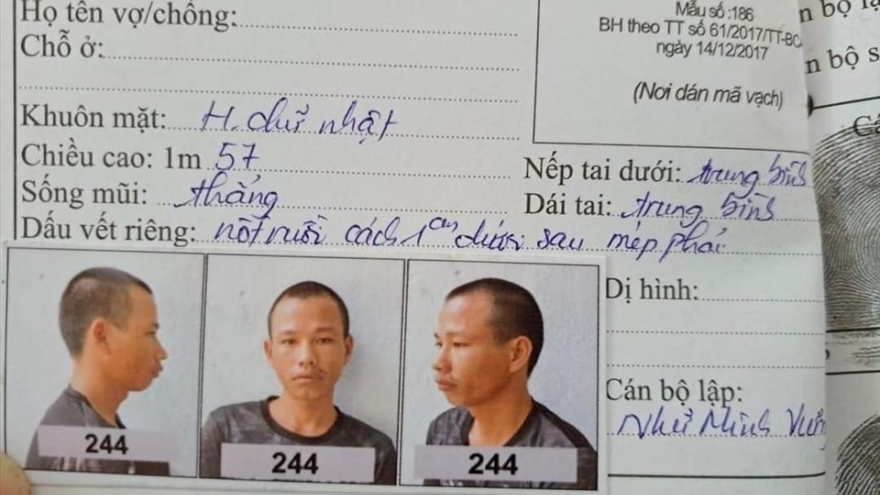 Họ tên vợ/chồng:
Chỗ ở:
Mẫu số :186
BH theo TT số 61/2017/TT-BC
ngày 14/12/2017
(Nơi dán mã vạch)
Khuôn mặt: H. chữ nhật
Chiều cao: 1m 57
Nếp tai dưới: trung bình
Sống mũi: thẳng
Dái tai: trung bình
Dấu vết riêng: nốt ruồi cách 1cm dưới sau mép phải
Dị hình:
Cán bộ lập:
Như Minh
244
244
244
n bộ
n bộ s